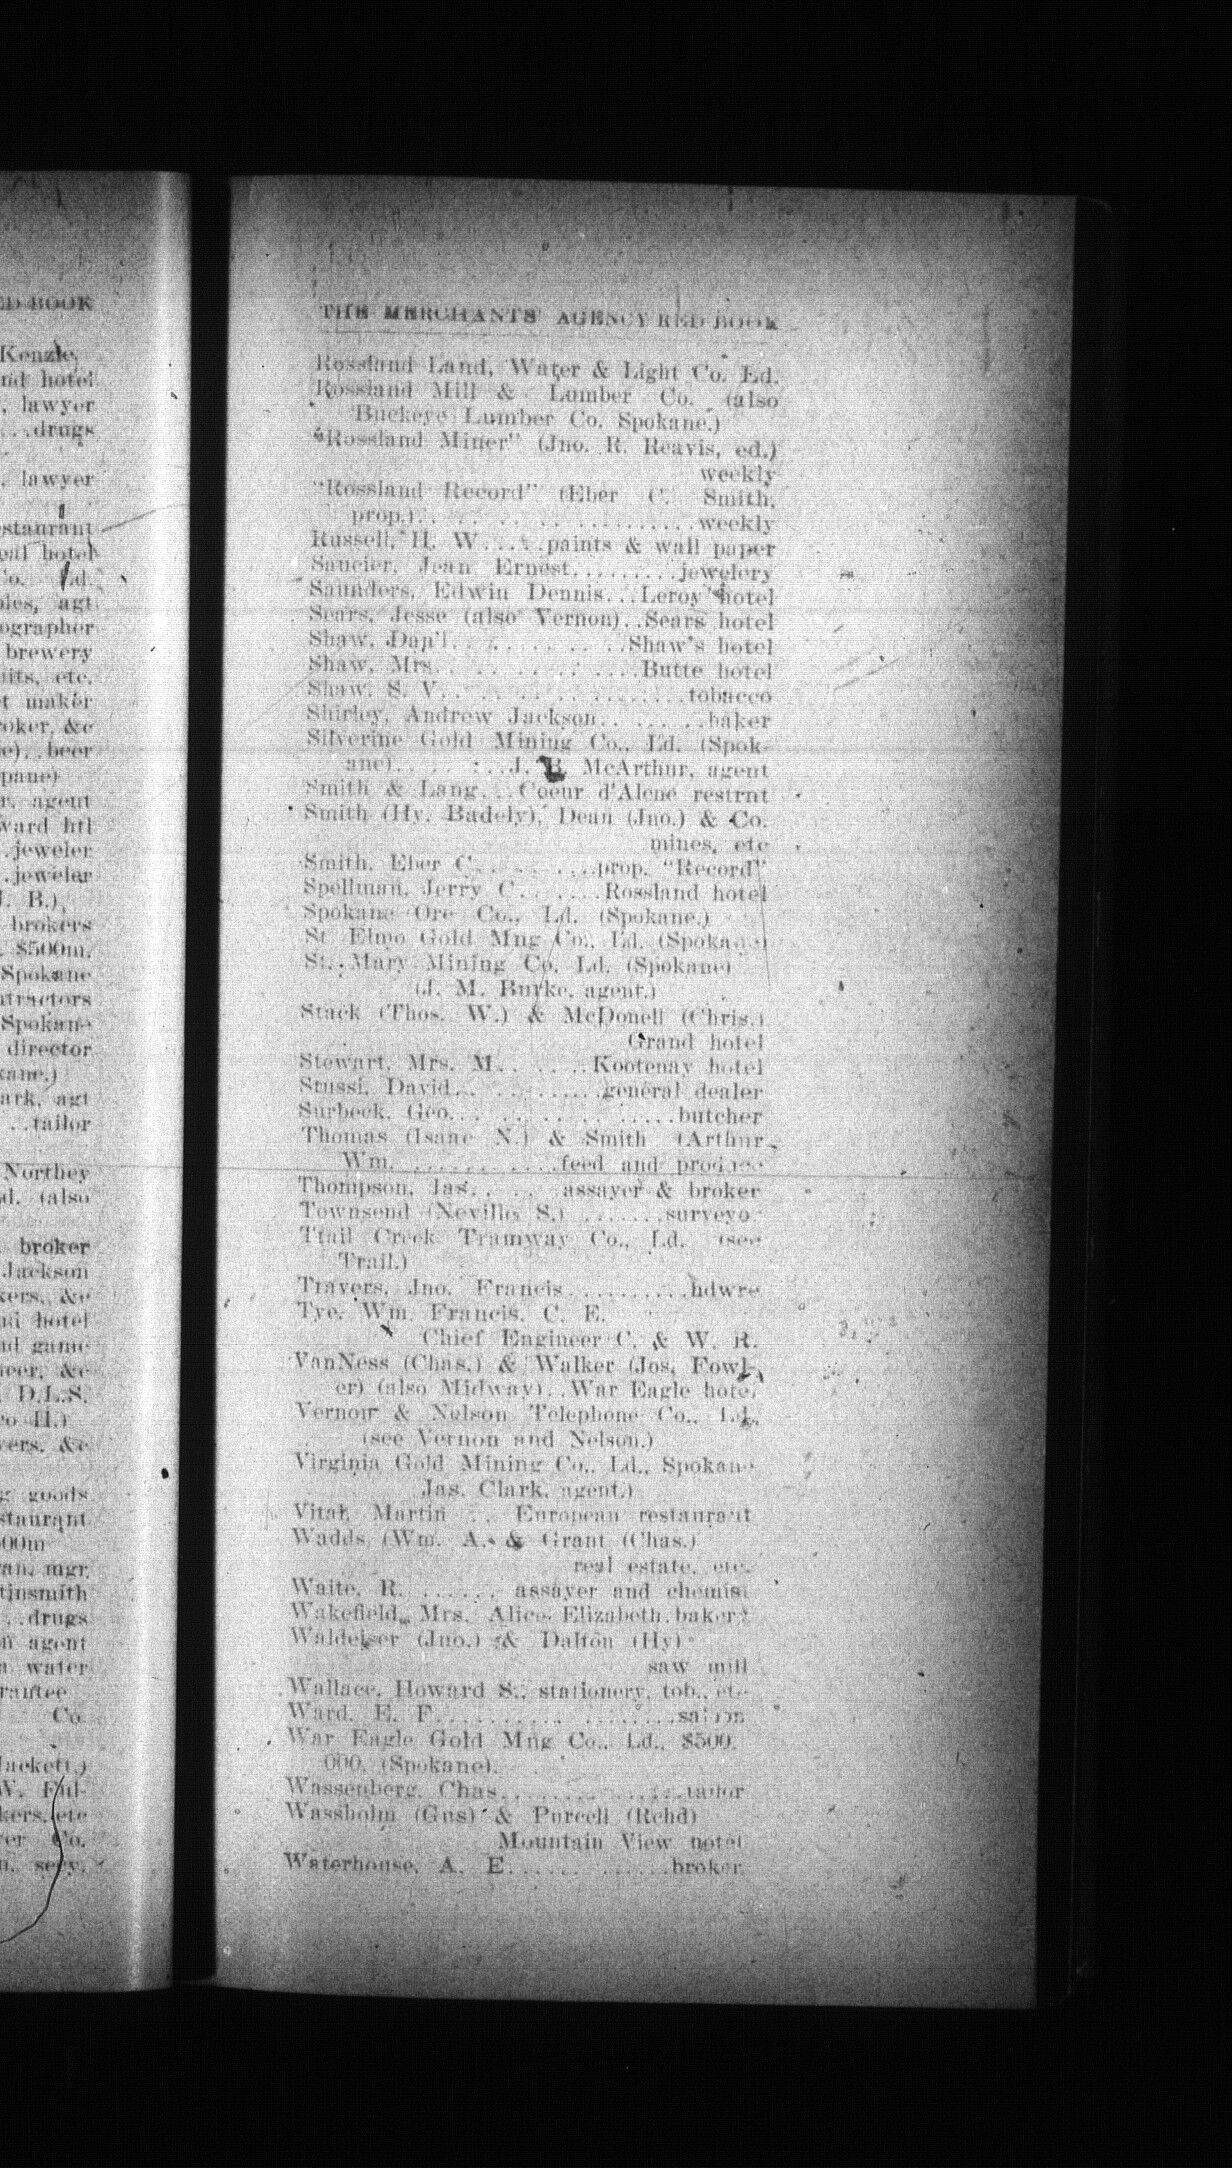 ED BOOK
Kenzie,
nd hotel
, lawyer
...drugs
, lawyer
estaurant
eal hotel
Co. Ld.
ples, agt
ographer
brewery
uits, etc.
et maker
roker, &c
e)..beer
pane)
r, agent
ward htl
..jeweler
..jeweler
J. B.),
brokers
$500m.
Spokane
ntractors
Spokane
director
kane.)
ark, agt
..tailor
Northey
d. (also
broker
Jackson
kers, &c
nd hotel
nd game
neer, &c
D.L.S.
ro H.)
vers, &c
g goods
staurant
500m
van, mgr.
tinsmith
...drugs
on agent
a water
rantee
Co.
Hackett.)
W. Ful-
kers, etc
er Co.
n, secy.
THE MERCHANTS' AGENCY RED BOOK
Rossland Land, Water & Light Co. Ld.
Rossland Mill & Lumber Co. (also
Buckeye Lumber Co. Spokane.)
"Rossland Miner" (Jno. R. Reavis, ed.)
weekly
"Rossland Record" (Eber C. Smith,
prop.)......................weekly
Russell, H. W......paints & wall paper
Saucier, Jean Ernest.........jewelery
Saunders, Edwin Dennis...Leroy hotel
Sears, Jesse (also Vernon)..Sears hotel
Shaw, Dan'l...............Shaw's hotel
Shaw, Mrs.................Butte hotel
Shaw, S. V....................tobacco
Shirley, Andrew Jackson.........baker
Silverine Gold Mining Co., Ld. (Spok-
ane).........J. B. McArthur, agent
Smith & Lang...Coeur d'Alene restrnt
Smith (Hy. Badely), Dean (Jno.) & Co.
mines, etc
Smith, Eber C..........prop. "Record"
Spellman, Jerry C.......Rossland hotel
Spokane Ore Co., Ld. (Spokane.)
St Elmo Gold Mng Co., Ld. (Spokane)
St. Mary Mining Co. Ld. (Spokane)
(J. M. Burke, agent.)
Stack (Thos. W.) & McDonell (Chris.)
Grand hotel
Stewart, Mrs. M........Kootenay hotel
Stussi, David............general dealer
Surbeck, Geo...................butcher
Thomas (Isaac N.) & Smith (Arthur
Wm. ............feed and produce
Thompson, Jas......assayer & broker
Townsend (Neville S.) .......surveyo
Trail Creek Tramway Co., Ld. (see
Trail.)
Travers, Jno. Francis..........hdwre
Tye, Wm. Francis, C. E.
Chief Engineer C. & W. R.
VanNess (Chas.) & Walker (Jos. Fowl-
er) (also Midway)..War Eagle hotel
Vernon & Nelson Telephone Co., Ld.,
(see Vernon and Nelson.)
Virginia Gold Mining Co., Ld., Spokane
Jas. Clark, agent.)
Vital, Martin ... European restaurant
Wadds (Wm. A. & Grant (Chas.)
real estate, etc.
Waite, R. ....... assayer and chemist
Wakefield, Mrs. Alice Elizabeth.bakery
Waldeiser (Jno.) & Dalton (Hy)
saw mill
Wallace, Howard S., stationery, tob., etc
Ward, E. F.....................saloon
War Eagle Gold Mng Co., Ld., $500,
000. (Spokane).
Wassenberg, Chas..............tailor
Wassholm (Gus) & Purcell (Rchd)
Mountain View hotel
Waterhouse, A. E..............broker